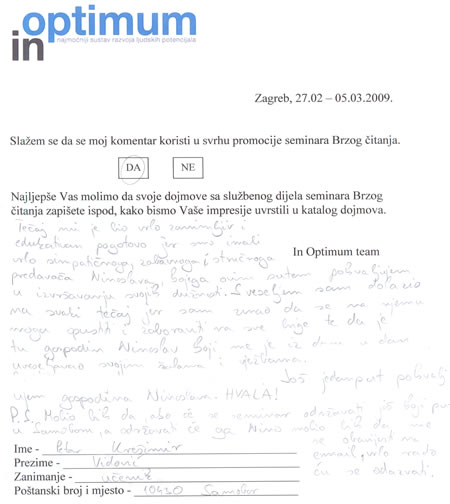 in optimum
najmoćniji sustav razvoja ljudskih potencijala
Zagreb, 27.02 – 05.03.2009.
Slažem se da se moj komentar koristi u svrhu promocije seminara Brzog čitanja.
DA NE
Najljepše Vas molimo da svoje dojmove sa službenog dijela seminara Brzog
čitanja zapišete ispod, kako bismo Vaše impresije uvrstili u katalog dojmova.
Tečaj mi je bio vrlo zanimljiv i
edukativan pogotovo jer smo imali
In Optimum team
vrlo simpatičnog, zabavnog i stručnog
predavača Ninoslava, kojega ovim putem pohvaljujem
u izvršavanju svojih dužnosti. S veseljem sam dolazio
na svaki tečaj jer sam znao da se na njemu
mogu opustiti i zaboraviti na sve brige te da je
tu gospodin Ninoslav koji me je iz dana u dan
uveseljavao svojim šalama i vježbama.
Još jedamput pohvalju
ujem gospodina Ninoslava. HVALA!
P.S. Molio bih da ako će se seminar održavati još koji put
u Samoboru, a održavati će ga Nino molio bih da me
se obavijesti na
email, vrlo rado
ću se odazvati.
Ime - Petar Krešimir
Prezime - Vidović
Zanimanje - učenik
Poštanski broj i mjesto - 10430 Samobor